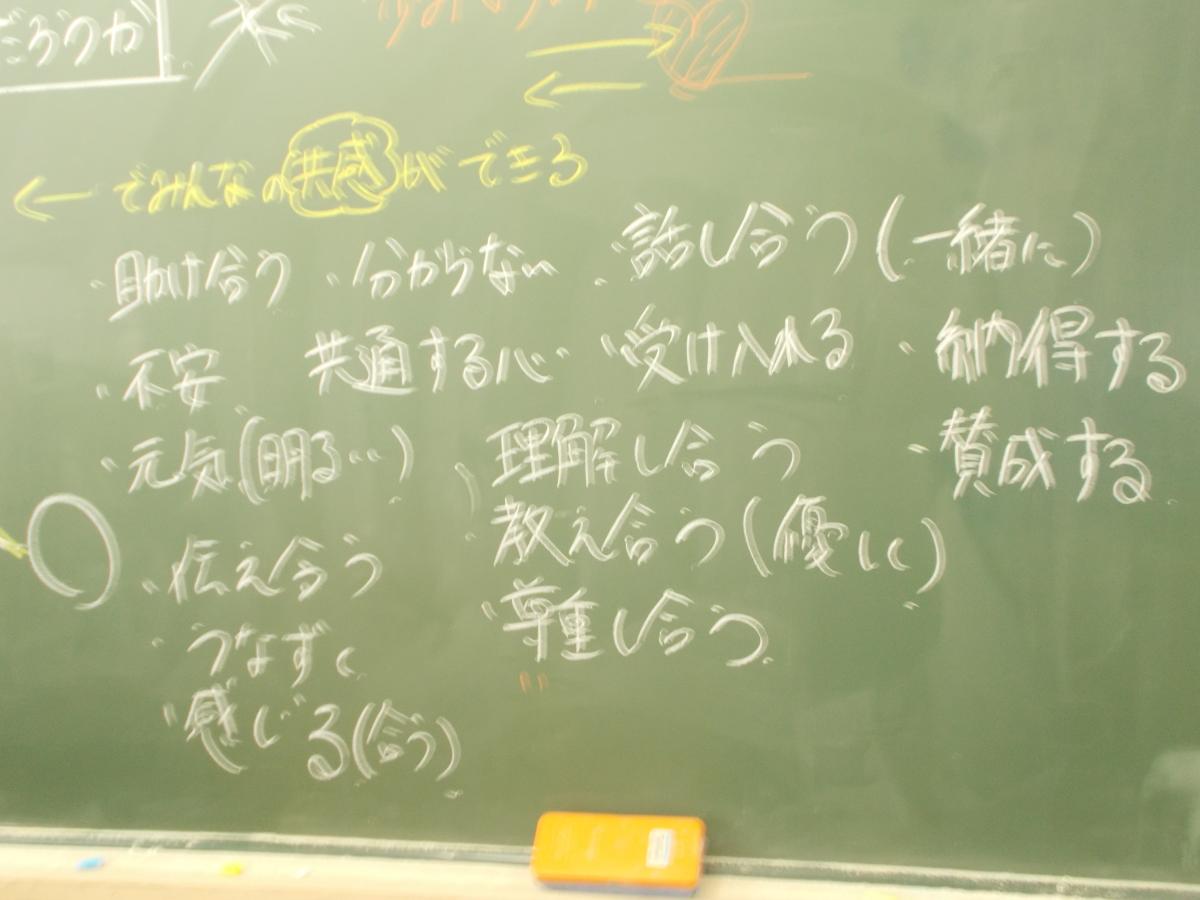 だろうか
← でみんなの共感ができる
・助け合う ・分からない ・話し合う(一緒に)
・不安 共通する心 ・受け入れる ・納得する
・元気(明る…) 理解し合う ・賛成する
・伝え合う ・教え合う(優しく)
・うなずく ・尊重し合う
・感じる(合う)